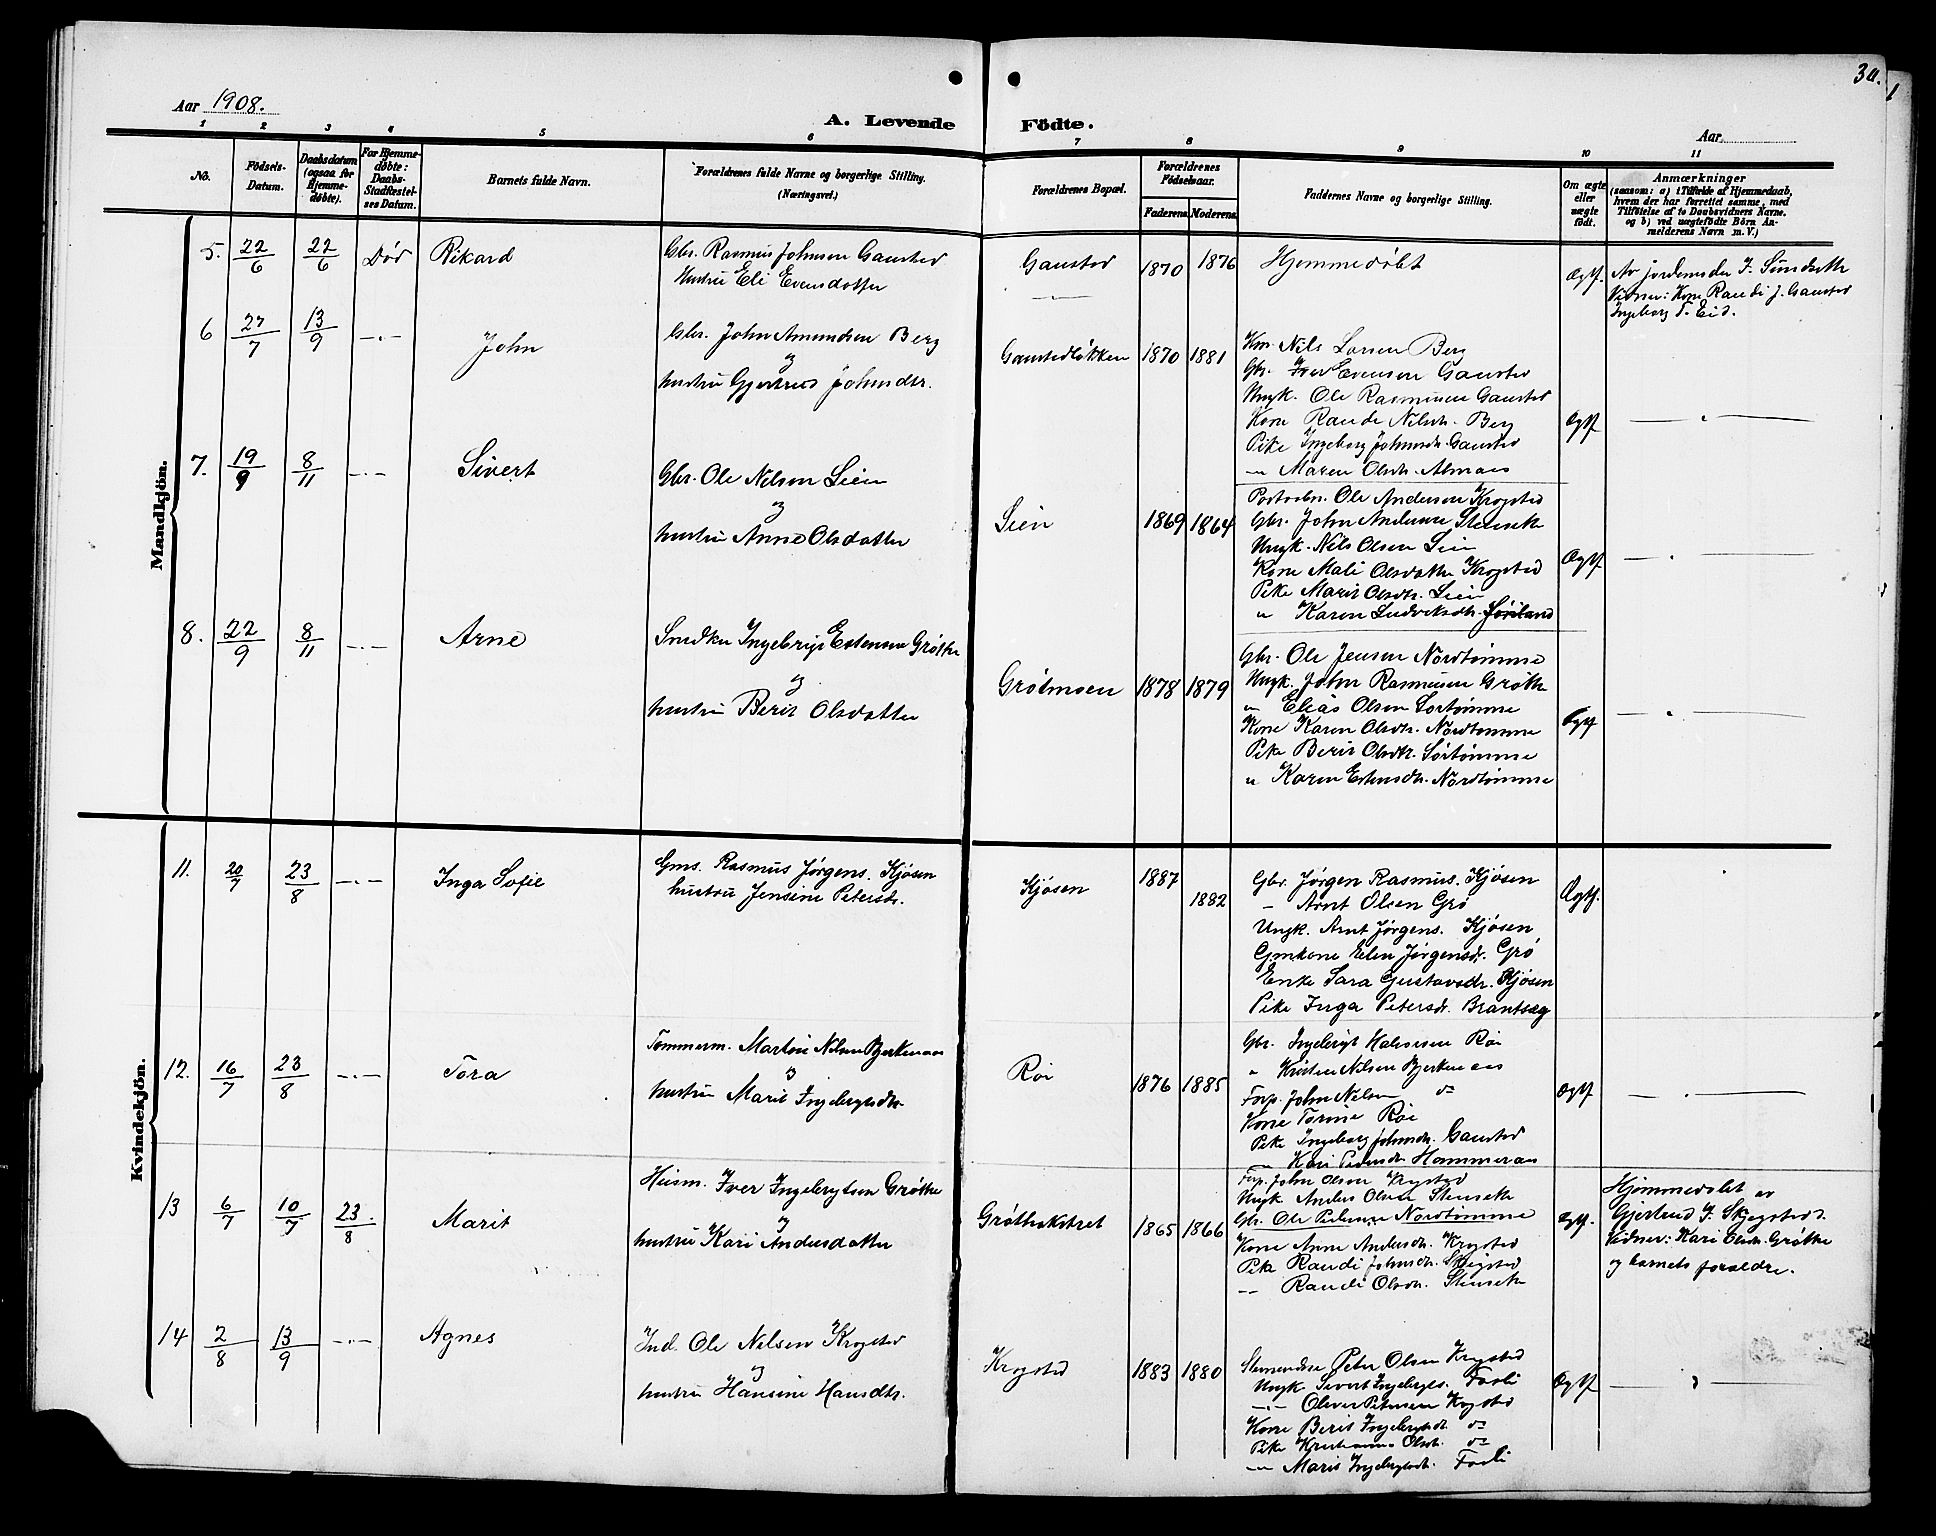 30.
1
Aar 1908.
A. Levende
Födte.
Aar
1 2 3 4 5 6 7 8 9 10 11
No.
Födsels-
Datum.
Daabsdatum
(ogsaa for
Hjemme-
döbte).
For Hjemme-
döbte:
Daabs-
Stadfæstel-
ses Datum.
Barnets fulde Navn.
Forældrenes fulde Navne og borgerlige Stilling.
(Næringsvei.)
Forældrenes Bopæl.
Forældrenes
Födselsaar.
Faderens.
Moderens.
Faddernes Navne og borgerlige Stilling.
Om ægte
eller
uægte
födt.
Anmærkninger
(saasom: a) i Tilfælde af Hjemmedaab,
hvem der har forrettet samme, med
Tilföielse af to Daabsvidners Navne.
og b) ved uægtefödte Börn An-
melderens Navn m. V.)
Mandkjön.
5. 22/6 22/6 Död Rikard
Gbr. Rasmus Johnsen Gaustad
Hustru Eli Evensdatter
Gaustad
1870 1876
Hjemmedøbt
Ægtf.
Av jordemoder I. Sundseth
Vidner: Kone Randi J. Gaustad
Ingeborg T. Eid.
6 27/7 13/9 -"- John
Gbr. John Amundsen Berg
og
hustru Gjertrud Johnsdtr.
Gaustadløkken 1870 1881
Krn. Nils Larsen Berg
Gbr. Iver Evensen Gaustad
Ungk. Ole Rasmussen Gaustad
Kone Randi Nilsdr. Berg
Pike Ingeborg Johnsdr. Gaustad
-"- Maren Olsdr. Almaas
Ægtf
7. 19/9 8/11 -"- Sivert
Gbr. Ole Nilsen Sein
og
hustru Anne Olsdatter
Sein
1869 1864
Postaabn. Ole Andersen Krogstad
Gbr. John Andersen Stenseth
Ungk. Nils Olsen Sein
Kone Mali Olsdatter Krogstad
Pike Marit Olsdtr. Sein
" Karen Ludviksdtr.
Ægtf
8. 22/9 8/11 -"- Arne
Snedker Ingebrigt Estensen Grøthe
og
hustru Berit Olsdatter
Grøtmoen 1878 1879
Gbr. Ole Jensen Nordtømme
Ungk. John Rasmussen Grøthe
" Elias Olsen Sørtømme
Kone Karen Olsdtr. Nordtømme
Pike Berit Olsdtr. Sørtømme
" Karen Estensdtr. Nordtømme
Ægtf
Kvindekjön.
11. 20/7 23/8 -"- Inga Sofie
Gms. Rasmus Jørgens. Kjøsen
hustru Jensine Petersdr.
Kjøsen
1887
1882
Gbr. Jørgen Rasmus. Kjøsen
- Arnt Olsen Grø
Ungk. Arnt Jørgens. Kjøsen
Gmkone Elen Jørgensdr. Grø
Enke Sara Gustavsdr. Kjøsen
Pike Inga Petersdr. Brantsæg
Ægtf.
12. 16/7 23/8 -"- Tora
Tømmerm. Martin Nilsen Bjerkenaas
og
hustru Marit Ingebrigtsdtr.
Røi
1876 1885
Gbr. Ingebrigt Røi
" Kristen Nilsen Bjerkenaas
Forp. John Nilsen do
Kone Torine Røi
Pike Ingeborg Johnsdr. Gaustad
" Kari Pedersdr. Hammeraas
Ægtf
13 6/7 10/7 23/8 Marit
Husm. Iver Ingebrigtsen Grøthe
og
hustru Kari Andersdatter
1865 1866
Forp. John Olsen Krogstad
Ungk Anders Olsen Stenseth
Gbr. Ole Pedersen Nordtømme
Kone Anne Andersdr. Krogstad
Pike Randi Johnsdr. Skjegstad
-"- Randi Olsdtr. Stenseth
Ægtf.
Hjemmedøbt av
Gjertrud I. Skjegstad.
Vidner: Kari Olsdr. Grøthe
og barnets forældre.
14 2/8 13/9 -"- Agnes
Ind. Ole Nilsen Krogstad
og
hustru Hansine Hansdtr.
Krogstad
1883 1880
Peter Olsen Krogstad
Ungk Sivert Ingebrigts. Fosli
-"- Oliver Petersen Krogstad
Kone Berit Ingebrigtsdr. do
Pike Kristianna Olsdr. do
-"- Marit Ingebrigtsdr. Fosli
Ægtf